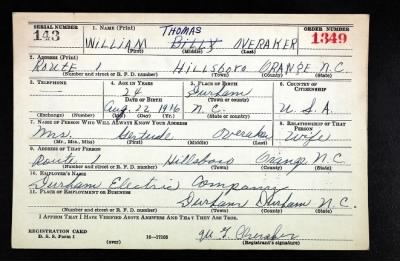 SERIAL NUMBER
143
1. Name (Print)
ORDER NUMBER
1349
THOMAS
WILLIAM BILLY OVERAKER
(First) (Middle) (Last)
2. Address (Print)
Route 1 Hillsboro ORANGE N.C.
(Number and street or R. F. D. number) (Town) (County) (State)
3. Telephone
—
4. Age in Years
24
5. Place of Birth
Durham
6. Country of Citizenship
Date of Birth
(Town or county)
Aug. 22 1916 N.C. U.S.A.
(Exchange) (Number) (Mo.) (Day) (Yr.) (State or country)
7. Name of Person Who Will Always Know Your Address
8. Relationship of That Person
Mrs. Gertude Overaker Wife
(Mr., Mrs., Miss) (First) (Middle) (Last)
9. Address of That Person
Route 1 Hillsboro Orange N.C.
(Number and street or R. F. D. number) (Town) (County) (State)
10. Employer's Name
Durham Electric Company
11. Place of Employment or Business
Durham Durham N.C.
(Number and street or R. F. D. number) (Town) (County) (State)
I Affirm That I Have Verified Above Answers and That They Are True.
REGISTRATION CARD
D. S. S. Form 1
(over)
T. Overaker
(Registrant's signature)